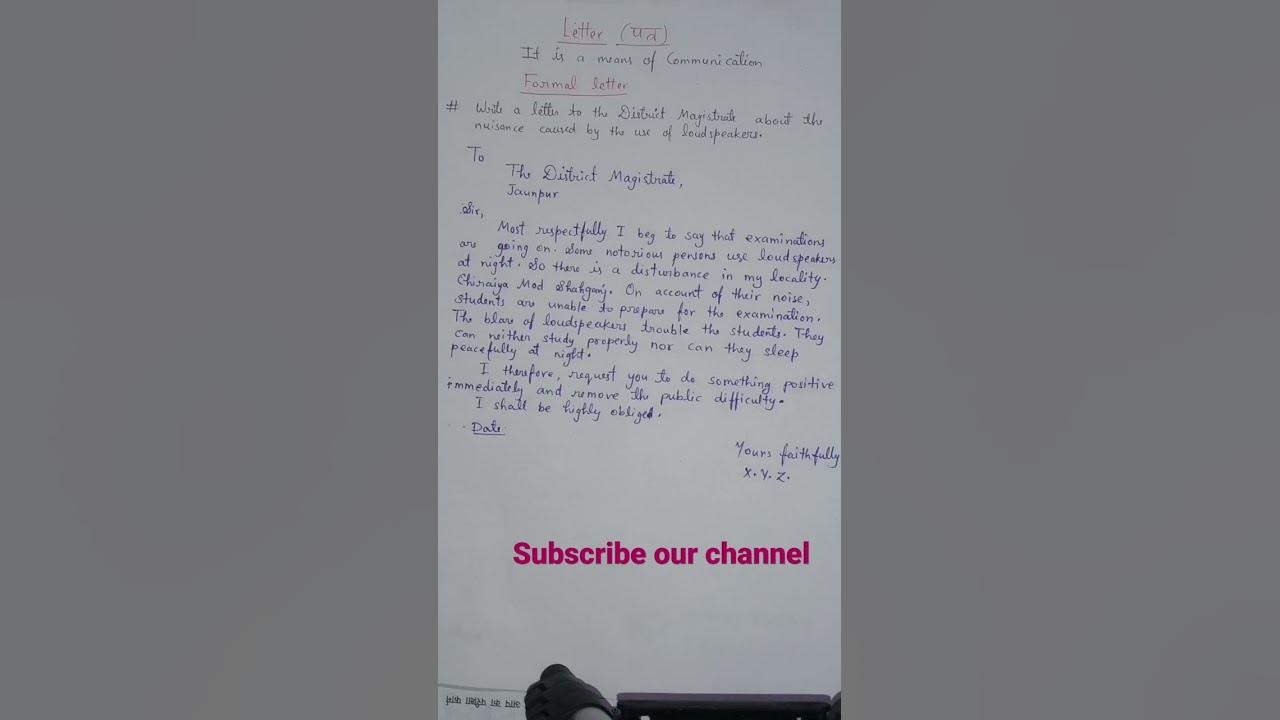 Letter (पत्र)
It is a means of Communication
Formal letter
# Write a letter to the District Magistrate about the
nuisance caused by the use of loudspeakers.
To
The District Magistrate,
Jaunpur
Sir,
Most respectfully I beg to say that examinations
are going on. Some notorious persons use loudspeakers
at night. So there is a disturbance in my locality.
Chiraiya Mod Shahganj. On account of their noise,
students are unable to prepare for the examination.
The blare of loudspeakers trouble the students. They
can neither study properly nor can they sleep
peacefully at night.
I therefore, request you to do something positive
immediately and remove the public difficulty.
I shall be highly obliged.
Date:
Yours faithfully
X. Y. Z.
Subscribe our channel
आप का परीक्षा फार्म